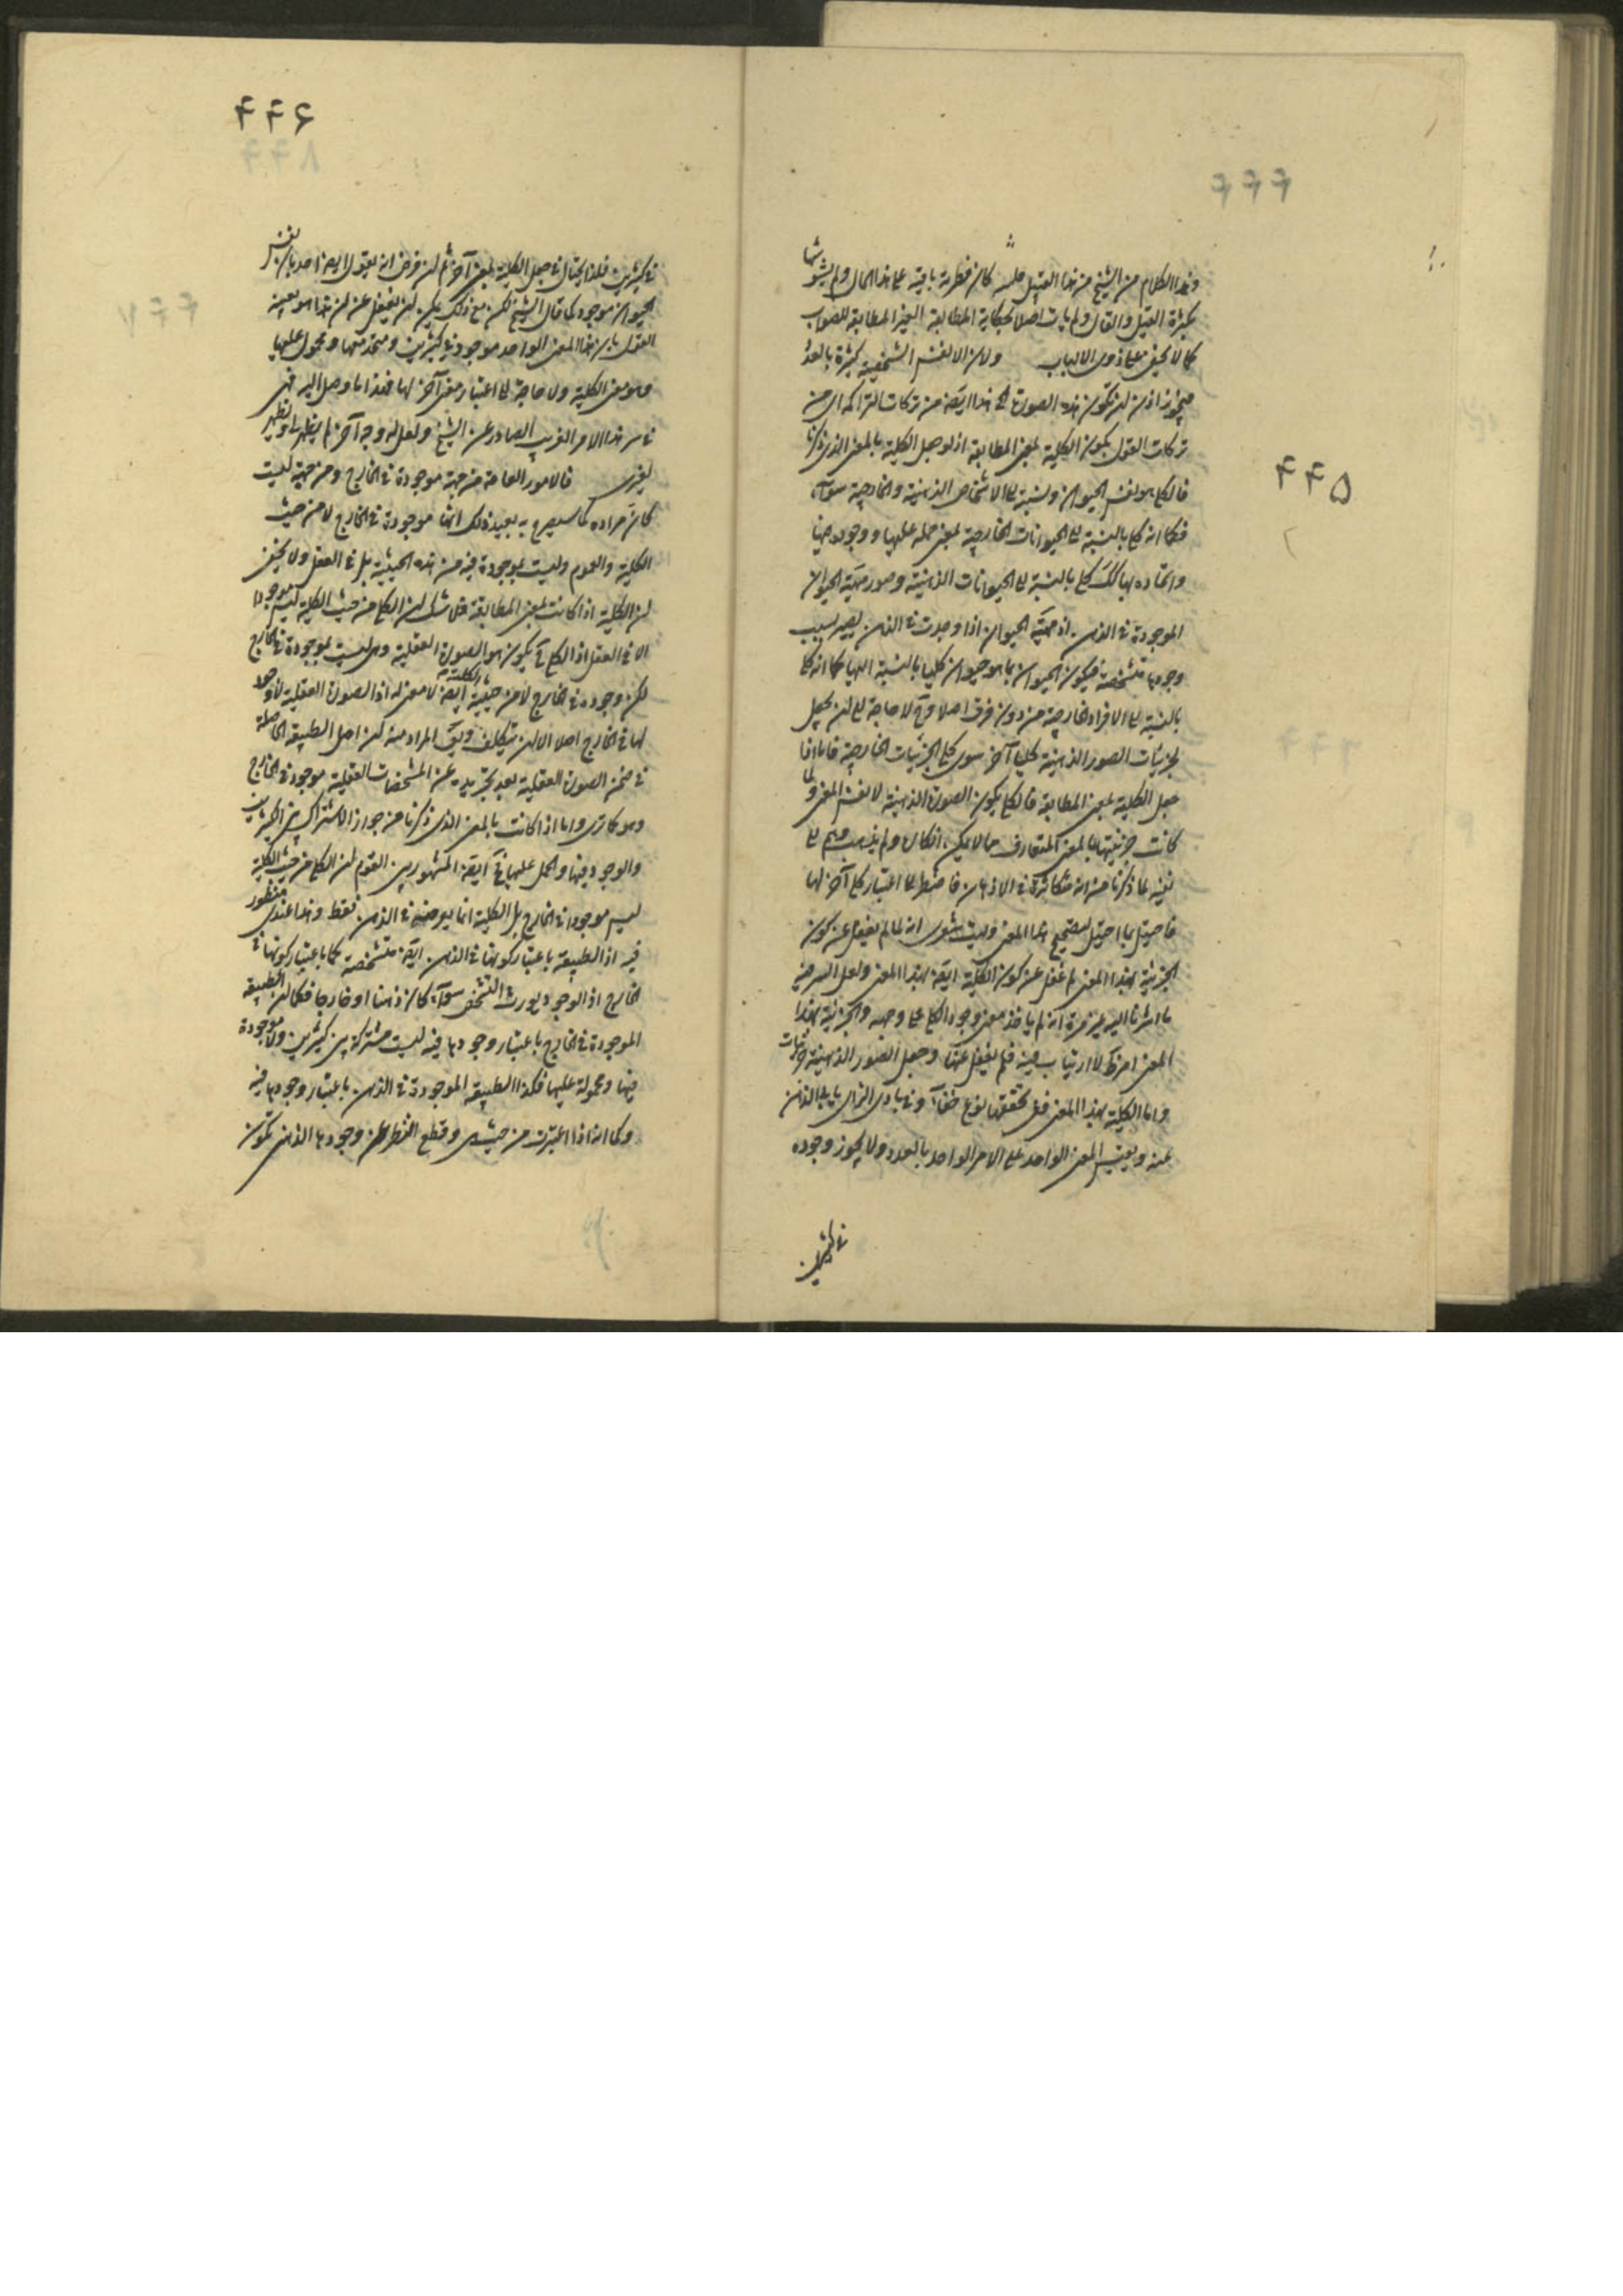 ۴۴۵
وهذا الكلام من الشيخ من هذا القبيل كان فطرته باقية على هذا الحال ولم يشوشها
بكثرة القيل والقال ولم يأت اصلا بحكاية المطابقة الغير المطابقة للصواب
كما لا يخفى على ذوى الالباب ولان الانفس الشخصية كثيرة بالعدد
فيجوز اذن ان تكون هذه الصورة الخ هذا ايضا من تركات المتراكمة اى من
تركات القول بكون الكلية بمعنى المطابقة اذ لو جعل الكلية بالمعنى الذى ذكرنا
فالكلى هو نفس الحيوان ونسبته الى الاشخاص الذهنية والخارجية سوآء
فكما انه كلى بالنسبة الى الحيوانات الخارجية بمعنى حمله عليها ووجوده فيها
واتحاده بها كك كلى بالنسبة الى الحيوانات الذهنية وصور مهية الحيوان
الموجودة فى الذهن اذ مهية الحيوان اذا وجدت فى الذهن يصير بسبب
وجودها متشخصة فيكون الحيوان بما هو حيوان كليا بالنسبة اليها كما انه كلى
بالنسبة الى الافراد الخارجية من دون فرق اصلا وح لا حاجة الى ان يجعل
لجزئيات الصور الذهنية كليا آخر سوى كلى الجزئيات الخارجية فاما اذا
جعل الكلية بمعنى المطابقة فالكلى يكون الصورة الذهنية لا نفس المعنى ولما
كانت جزئيتها بالمعنى المتعارف مما لا يمكن انكاره ولم يذهب وهمهم الى
نفيه لما ذكرنا من انه متكاثرة فى الاذهان فاضطر الى اعتبار كلى آخر لها
فاحتيل بما احتيل لتصحيح هذا المعنى وليت شعرى انه لما لم يغفل عن كون
الجزئية بهذا المعنى لم غفل عن كون الكلية ايضا بهذا المعنى ولعل السر فيه
ما اشرنا اليه غير مرة انه لم يأخذ معنى وجود الكلى على وجهه والجزئية بهذا
المعنى امر لا ارتياب فيه فلم يغفل عنها وجعل الصور الذهنية جزئيات
واما الكلية بهذا المعنى ففى تحققها نوع خفآء وفى بادى الرأى يأبى الذهن
عنه ويقيس المعنى الواحد على الامر الواحد بالعدد ولا يجوز وجوده
فى كثيرين
۴۴۶
فى كثيرين فلذا يحتال فى جعل الكلية بمعنى آخر ثم ان فرض انه يقول ايضا احد بان نفس
الحيوان موجود كما قال الشيخ لكن مع ذلك يمكن ان يغفل عن ان هذا هو بعينه
القول بان هذا المعنى الواحد موجود فى كثيرين ومتحد معها ومحمول عليها
وهو معنى الكلية ولا حاجة الى اعتبار معنى آخر لها فهذا ما وصل اليه فهمى
فى سر هذا الامر الغريب الصادر عن الشيخ ولعل له وجه آخر لم يظهر لى ويظهر
لغيرى فالامور العامة من جهة موجودة فى الخارج ومن جهة ليست
كان مراده كما سيصرح به بعيد ذلك انها موجودة فى الخارج لا من حيث
الكلية والعموم وليست بموجودة فيه من هذه الحيثية بل فى العقل ولا يخفى
ان الكلية اذا كانت بمعنى المطابقة فلا شك ان الكلى من حيث الكلية ليس موجودا
الا فى العقل اذ الكلى ح يكون هو الصورة العقلية وهى ليست بموجودة فى الخارج
لكن وجوده فى الخارج لا من حيثية الكلية ايضا لا معنى له اذ الصورة العقلية لا وجود
لها فى الخارج اصلا الا ان يتكلف ويق المراد منه ان اصل الطبيعة الحاصلة
فى ضمن الصورة العقلية بعد تجريده عن المشخصات العقلية موجود فى الخارج
وهو كما ترى واما اذا كانت بالمعنى الذى ذكرنا من جواز الاشتراك بين الكثيرين
والوجود فيها والحمل عليها فح ايضا المشهور بين القوم ان الكلى من حيث الكلية
ليس موجودا فى الخارج بل الكلية انما يعرضه فى الذهن فقط وهذا عندى منظور
فيه اذ الطبيعة باعتبار كونها فى الذهن ايضا متشخصة كما باعتبار كونها فى
الخارج اذ الوجود يورث التشخص سوآء كان ذهنا او خارجا فكما ان الطبيعة
الموجودة فى الخارج باعتبار وجودها فيه ليست مشتركة بين كثيرين ولا موجودة
فيها ومحمولة عليها فكذا الطبيعة الموجودة فى الذهن باعتبار وجودها فيه
وكما انه اذا اعتبرت من حيث هى وقطع النظر عن وجودها الذهنى تكون